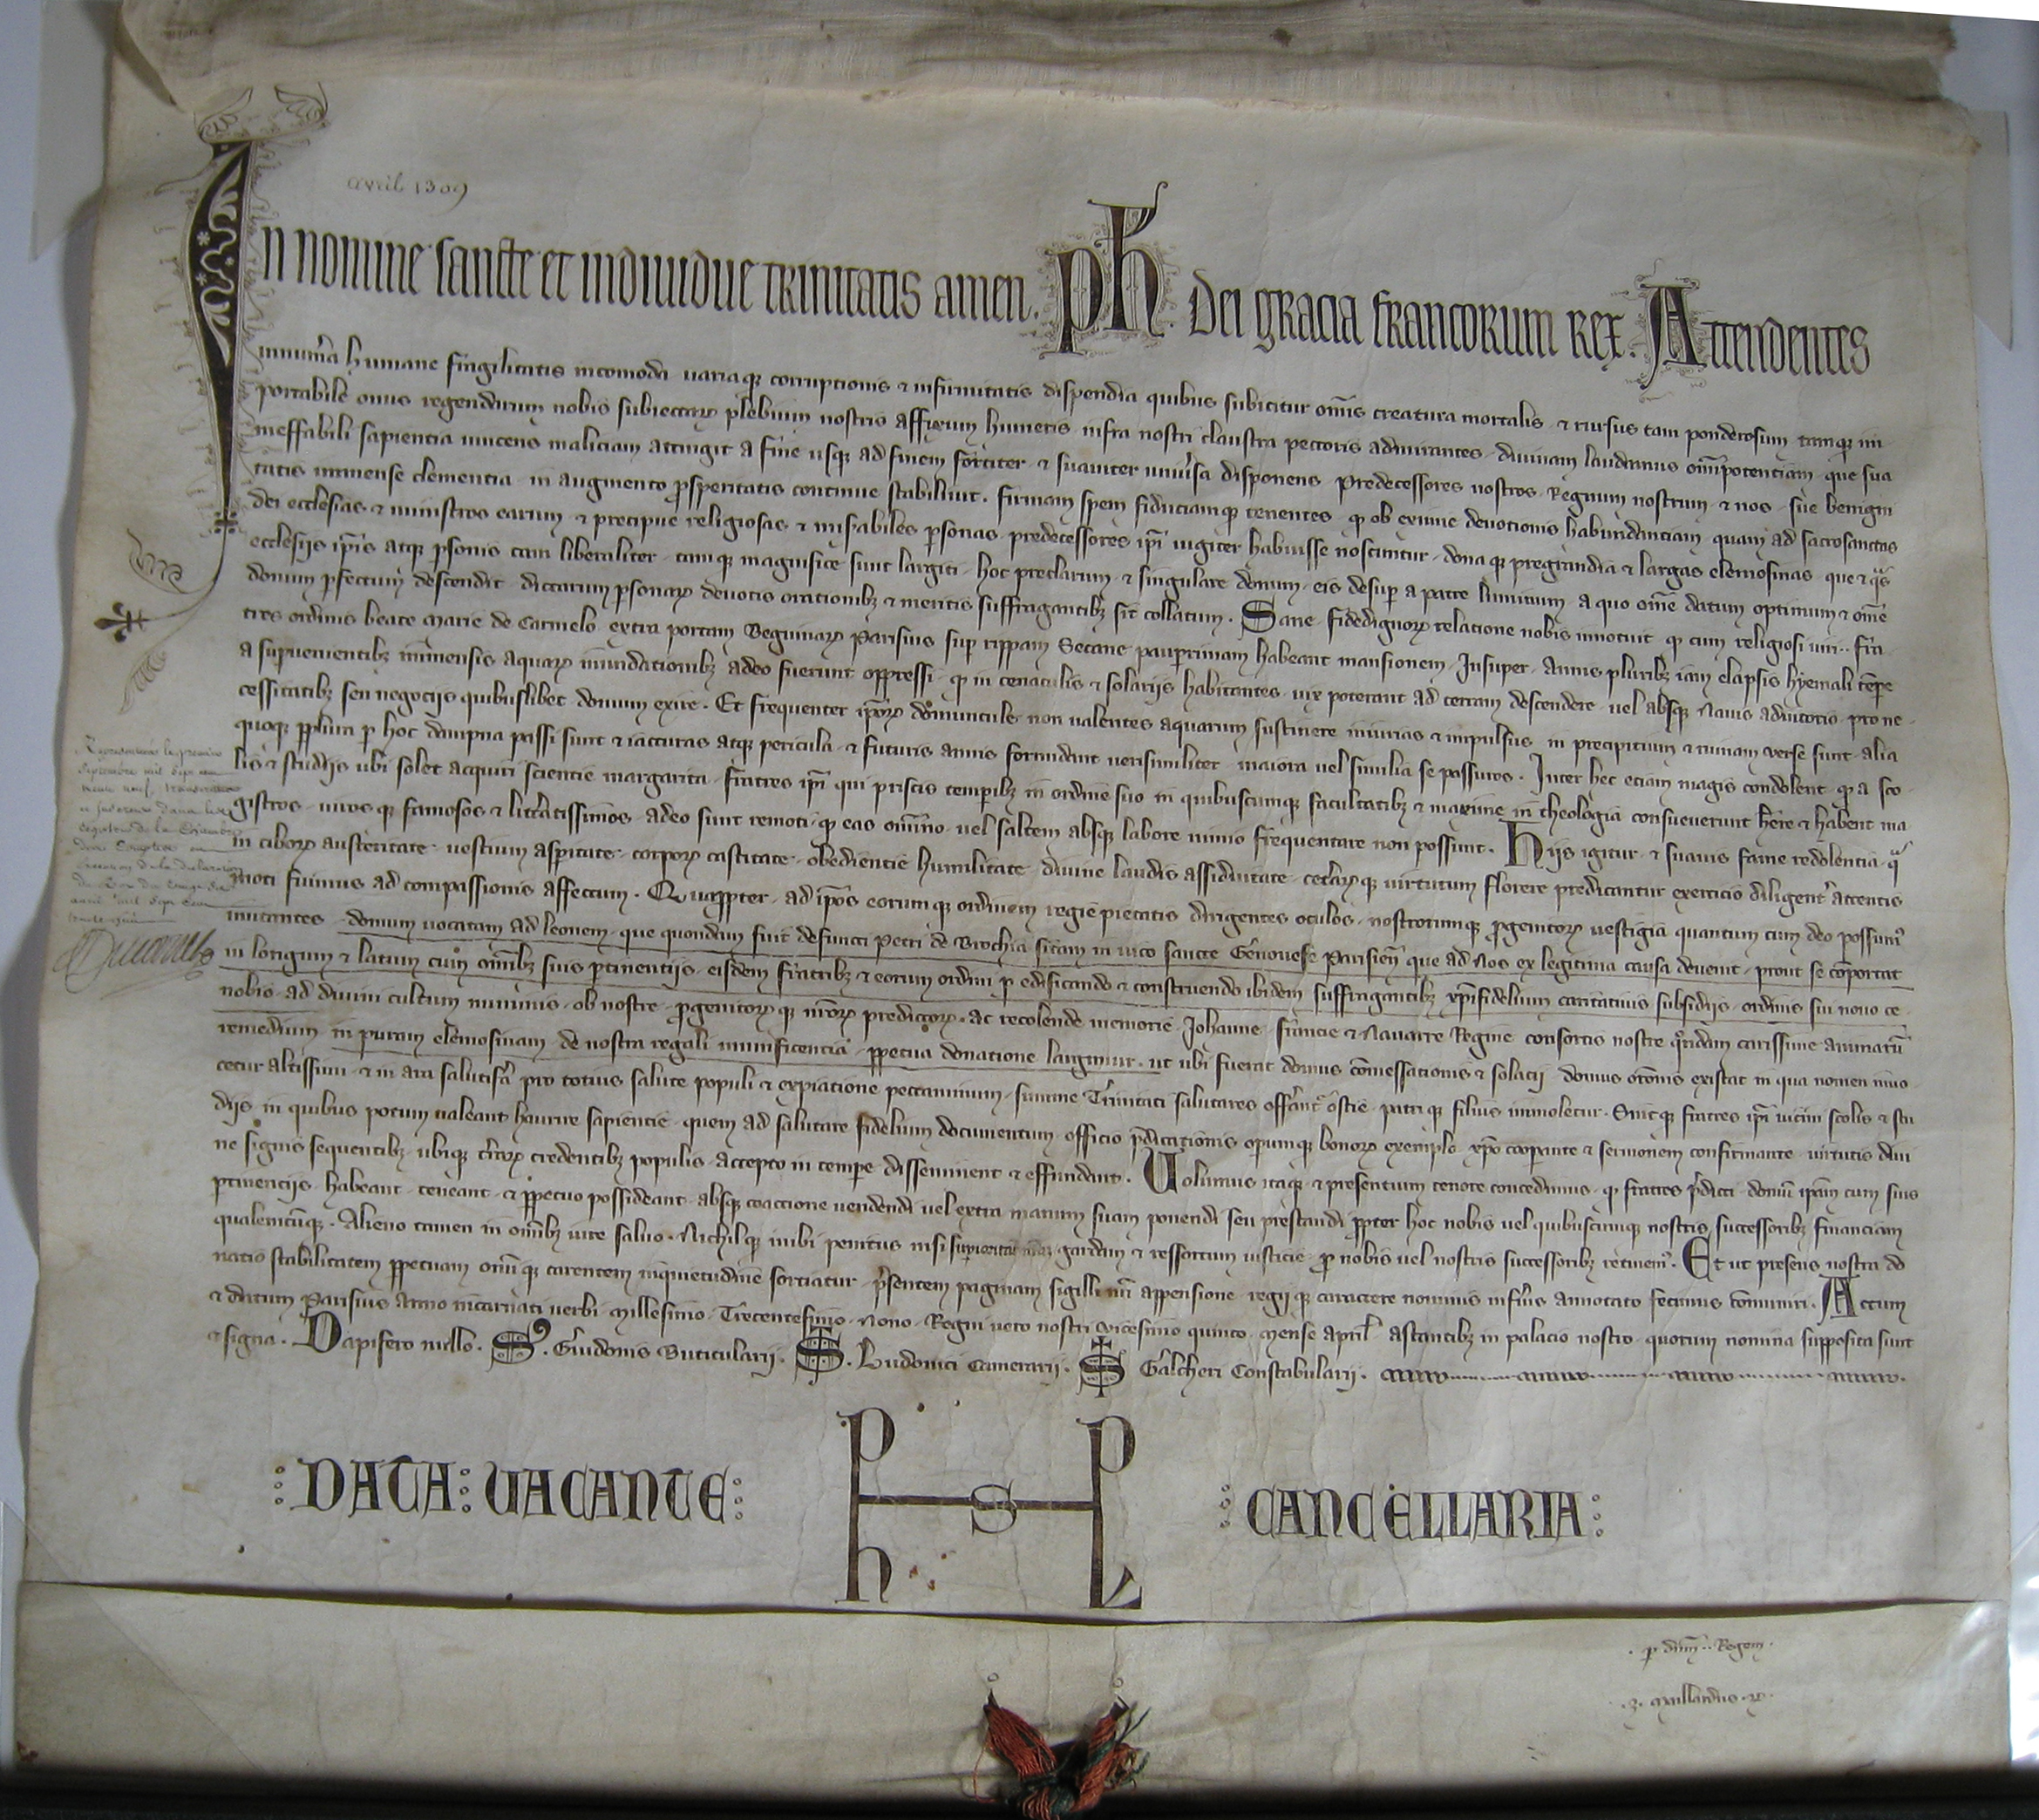 avril 1309
In nomine sancte et individue trinitatis amen. Ph. Dei gracia francorum Rex. Attendentes
innumera humane fragilitatis incomoda variaque corruptionis & infirmitatis dispendia quibus subicitur omnis creatura mortalis & rursus tam ponderosum tamque im
portabile onus regendarum nobis subiectarum plebium nostris affixum humeris infra nostri claustra pectoris admirantes divinam laudamus omnipotentiam que sua
ineffabili sapientia vincens maliciam attingit a fine usque ad finem fortiter & suaviter universa disponens Predecessores nostros Regnum nostrum & nos sue benigni
tatis immense clementia in augmento prosperitatis continue stabilivit. Firmam spem fiduciamque tenentes quod ob eximie devotionis habundantiam quam ad sacrosanctas
dei ecclesias & ministros earum & precipue religiosas & miserabiles personas predecessores ipsi iugiter habuisse noscuntur dona que pregrandia & largas elemosinas que & quas
ecclesiis ipsis atque personis tam liberaliter tamque magnifice sunt largiti hoc preclarum & singulare donum eis desuper a patre luminum a quo omne datum optimum & omne
donum perfectum descendit dictarum personarum devotis orationibus & meritis suffragantibus sit collatum. Sane fidedignorum relatione nobis innotuit quod cum religiosi viri.. fra
tres ordinis beate Marie de Carmelo extra portam Beguinarum Parisius super rippam Secane pauperrimam habeant mansionem Insuper Annis pluribus iam elapsis hyemali tempore
a supervenientibus immensis aquarum inundationibus adeo fuerunt oppressi quod in cenaculis & solariis habitantes vix poterant ad terram descendere vel absque Navis adiutorio pro ne
cessitatibus seu negociis quibuslibet domum exire. Et frequenter ipsorum domuncule non valentes aquarum sustinere iniurias & impulsus in precipitium & ruinam verse sunt alia
quoque perplura per hoc dampna passi sunt & iacturas atque pericula & futuris annis formidant verisimiliter maiora vel similia se passuros. Inter hec etiam magis condolent quod a sco
lis & studiis ubi solet acquiri scientie margarita fratres ipsi qui priscis temporibus in ordine suo in quibuscumque facultatibus & maxime in theologia consueverunt habere & habent ma
gistros viros que famosos & litteratissimos adeo sunt remoti quod eas omnino vel saltem absque labore nimio frequentare non possunt. Hiis igitur & suavis fame redolentia qua
in ciborum austeritate vestium asperitate corporum castitate obediencie humilitate divine laudis assiduitate ceterarumque virtutum florere predicantur exercicio diligenter attentis
moti fuimus ad compassionis affectum. Quapropter ad ipsos eorumque ordinem regie pietatis dirigentes oculos nostrorumque progenitorum vestigia quantum cum deo possumus
imitantes domum vocatam ad leonem que quondam fuit defuncti Petri de Brochia sitam in vico sancte Genovefe Parisiensis que ad Nos ex legitima causa devenit prout se comportat
in longum & latum cum omnibus suis pertinentiis eisdem fratribus & eorum ordini pro edificando & construendo ibidem suffragantibus Christifidelium caritativis subsidiis ordinis sui novo ce
nobio ad divini cultum numinis ob nostre progenitorumque nostrorum predictorum ac recolende memorie Johanne Francie & Navarre Regine consortis nostre quondam carissime animarum
remedium in puram elemosinam de nostra regali munificencia perpetua donatione largimur. ut ubi fuerat domus comessationis & solacii domus orationis existat in qua nomen invo
cetur altissimi & in ara salutifera pro totius salute populi & expiatione peccaminum summe Trinitati salutares offerantur hostie patrique filius immoletur. Sintque fratres ipsi vicini scolis & stu
diis in quibus potum valeant haurire sapientie quem ad salutare fidelium documentum officio predicationis operumque bonorum exemplo Christo cooperante & sermonem confirmante virtutis divi
ne signis sequentibus ubique terrarum credentibus populis accepto in tempore disseminent & effundant. Volumus itaque & presentium tenore concedimus quod fratres predicti domum ipsam cum suis
pertinenciis habeant teneant & perpetuo possideant absque coaccione vendendi vel extra manum suam ponendi seu prestandi propter hoc nobis vel quibuscumque nostris successoribus financiam
qualemcumque. Alieno tamen in omnibus iure salvo. Nichilque inibi penitus nisi gardam & ressortum iusticie pro nobis vel nostris successoribus retinemus. Et ut presens nostra do
natio stabilitatem perpetuam omnique carentem inquietudine sortiatur presentem paginam sigilli nostri appensione regiique caractere nominis inferius annotato fecimus communiri. Actum
& datum Parisius Anno incarnati verbi Millesimo Trecentesimo Nono Regni vero nostri vicesimo quinto Mense April' astantibus in palacio nostro quorum nomina supposita sunt
& signa. Dapifero nullo. S. Guidonis Buticularii. S. Ludovici Camerarii. S Galcheri Constabularii.
DATA VACANTE
Ph S PL
CANCELLARIA
p dnm.. Regem.
Maillardus